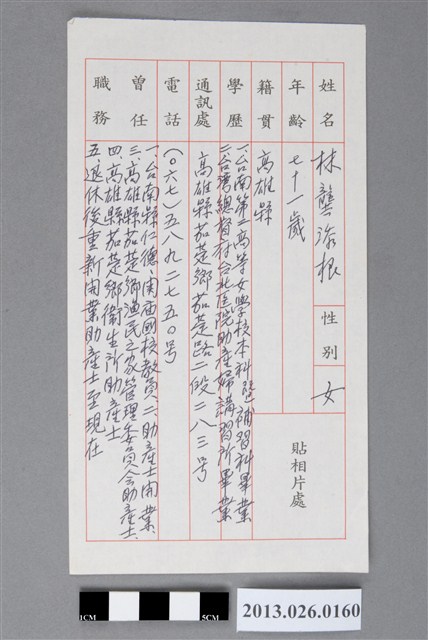 姓名 林龔添根 性別 女
年齡 七十一歲
籍貫 高雄縣
學歷 一、台南第二高等女學校本科暨補習科畢業
二、台灣總督府台北医院助產婦講習所畢業
通訊處 高雄縣茄萣鄉茄萣路二段二八三号
電話 (〇六七)五八九二七五〇号
曾任職務 一、台南縣仁德、開廟國校教員 二、助產士開業、
三、高雄縣茄萣鄉漁民之家管理委員会助產士、
四、高雄縣茄萣鄉衛生所助產士
五、退休後重新開業助產士至現在
貼相片處
1CM
5CM
2013.026.0160